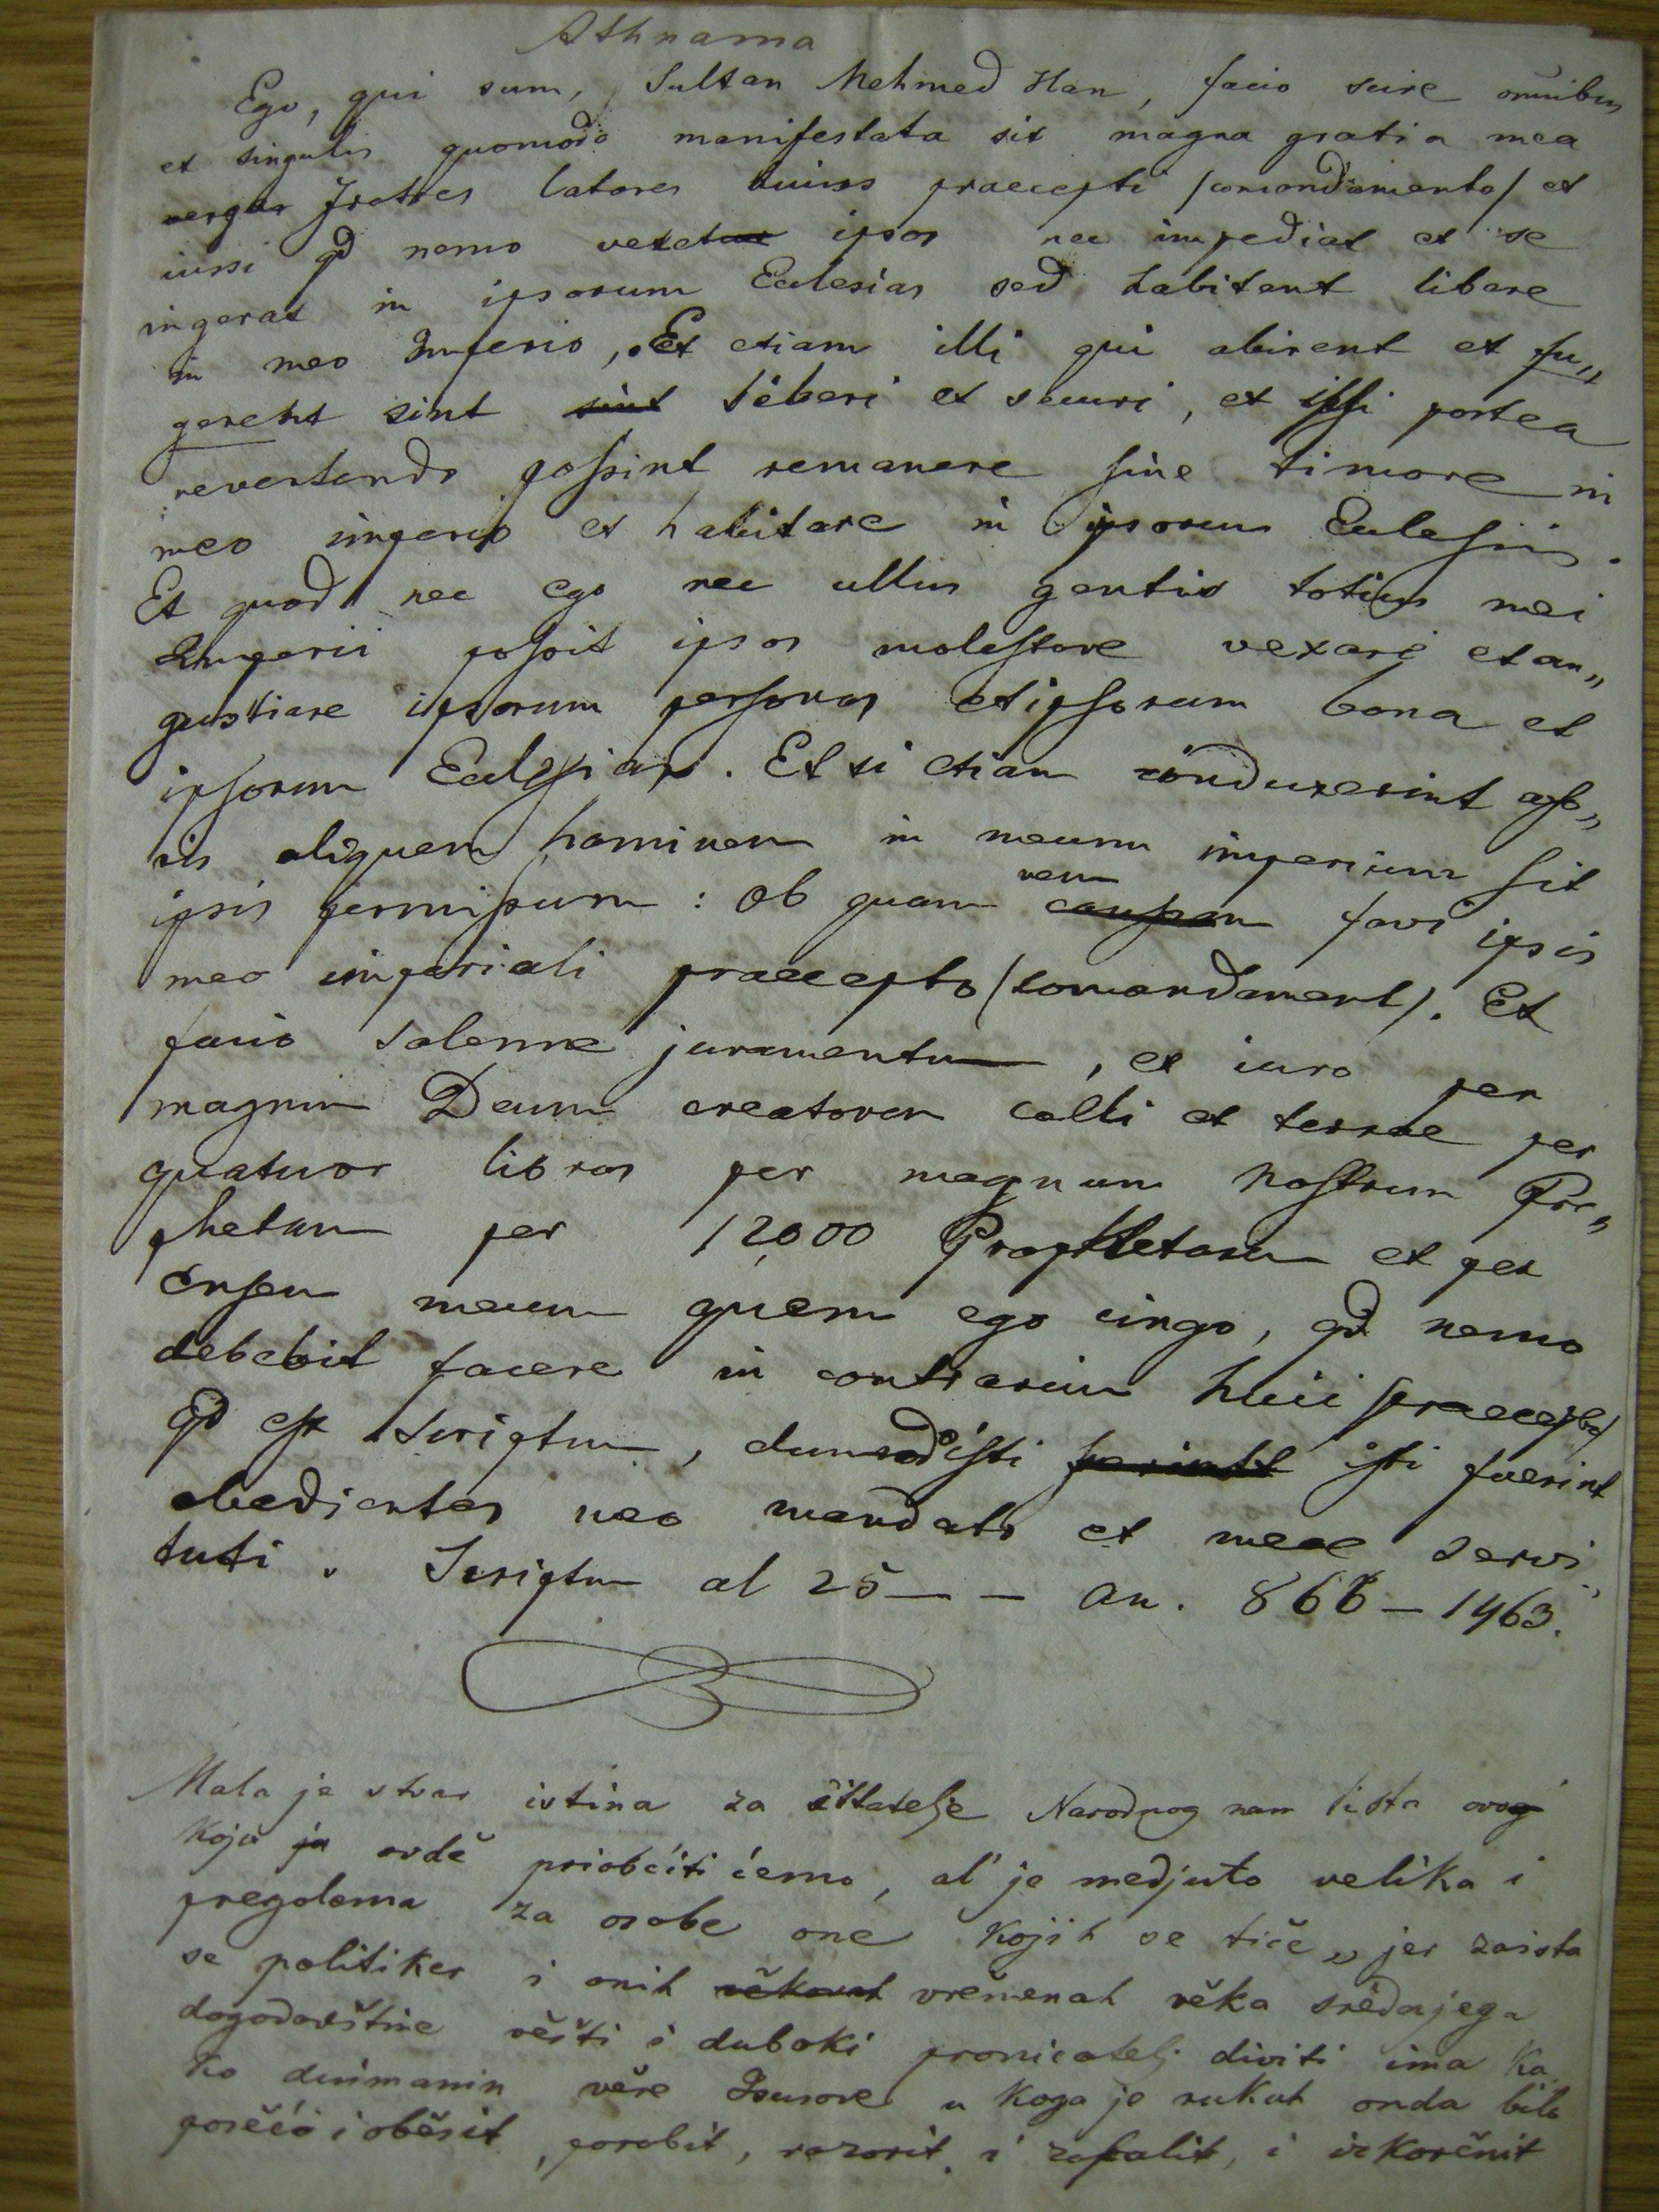 Athnama
Ego, qui sum, Sultan Mehmed Han, facio scire omnibus
et singulis quomodo manifestata sit magna gratia mea
vergas fratres latores huius praecepti /comandamento/ et
iussi qd nemo vetetur ipsos nec impediat et se
ingerat in ipsorum Eclesias sed habitent libere
in meo Imperio, Et etiam illi qui abirent et fu„
gerent sint sint liberi et securi, et ipsi postea
revertendo possint remanere sine timore in
meo imperio et habitare in ipsorum Eclesiis.
Et quod nec ego nec ullus gentis totius mei
Imperii possit ipsos molestare vexare et an„
gustiare ipsorum personas et ipsorum bona et
ipsorum Eclesias. Et si etiam conduxerint
aliquem hominem in meum imperium sit
ipsis permissum: Ob quam rem causam favi ipsis
meo imperiali praecepto /comandament/. Et
facio solenne juramentum, et iuro per
magnum Deum creatorem caelli et terrae per
quatuor libros per magnum nostrum Pro„
phetam per 12000 Prophetarum et per
ensem meum quem ego cingo, qd nemo
debebit facere in contrarium huic /praecepto/
qd est scriptum, dummodo isti fuerint isti fuerint
obedientes meo mandato et meae servi„
tuti. Scriptum al 25 — — an. 866 — 1463.
Mala je stvar istina za čittatelje Narodnog nam lista ovog
koju ju ovdě priobćiti ćemo, al' je medjuto velika i
pregolema za osobe one kojih se tiče, jer zaista
se politiker i onih věkovah vremenah věka srědnjega
dogodovštine věšti i duboki pronicatelj diviti ima ka
ko dušmanin věre Isusove u koga je rukuh onda bilo
posěći i oběsit, porobit, razorit, i zapalit, i izkorěnit